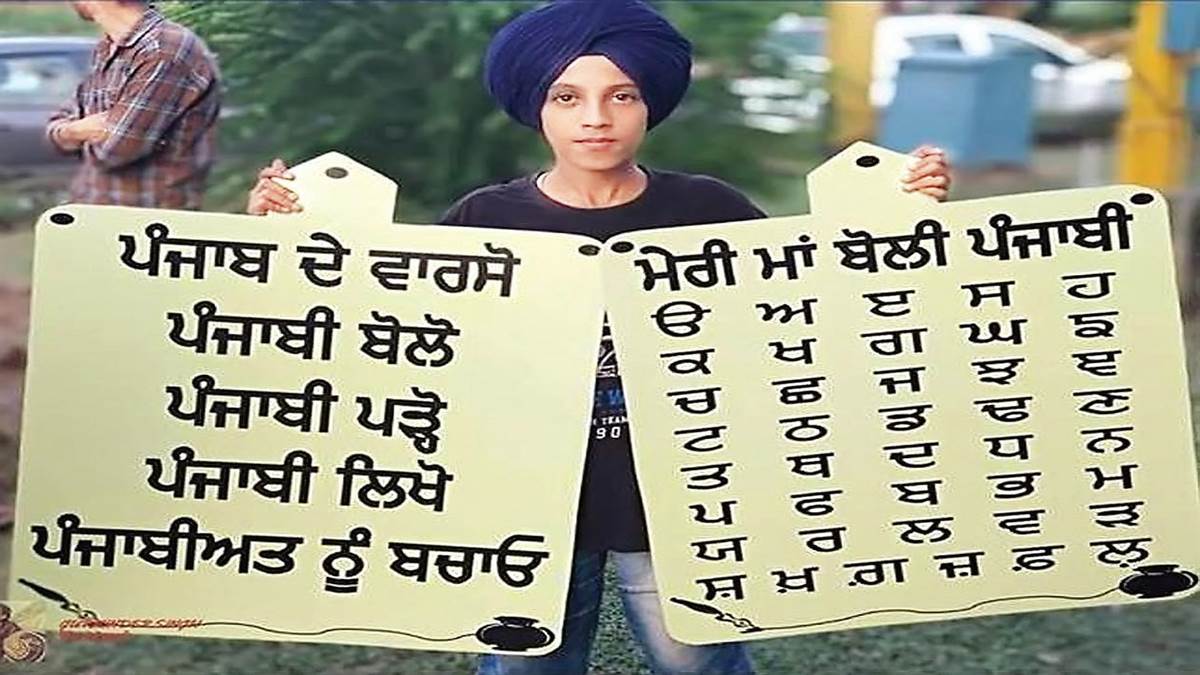 ਪੰਜਾਬ ਦੇ ਵਾਰਸੋ
ਪੰਜਾਬੀ ਬੋਲੋ
ਪੰਜਾਬੀ ਪੜ੍ਹੋ
ਪੰਜਾਬੀ ਲਿਖੋ
ਪੰਜਾਬੀਅਤ ਨੂੰ ਬਚਾਓ
ਮੇਰੀ ਮਾਂ ਬੋਲੀ ਪੰਜਾਬੀ
ੳ ਅ ੲ ਸ ਹ
ਕ ਖ ਗ ਘ ਙ
ਚ ਛ ਜ ਝ ਞ
ਟ ਠ ਡ ਢ ਣ
ਤ ਥ ਦ ਧ ਨ
ਪ ਫ ਬ ਭ ਮ
ਯ ਰ ਲ ਵ ੜ
ਸ਼ ਖ਼ ਗ਼ ਜ਼ ਫ਼ ਲ਼
TEAM
90
SINGH